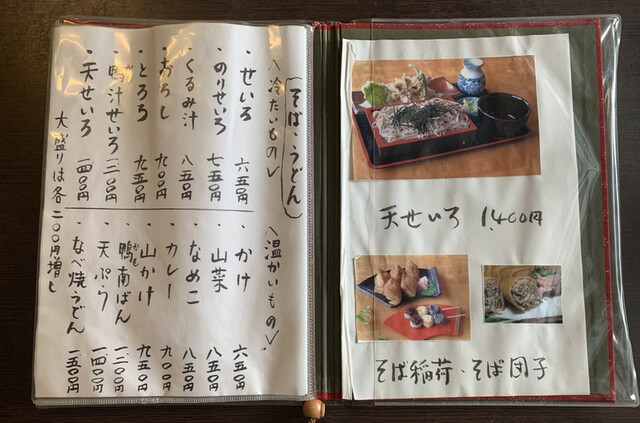 そば・うどん
〈冷たいもの〉
・せいろ 六五〇円
・のりせいろ 七五〇円
・くるみ汁 八五〇円
・おろし 九〇〇円
・とろろ 九五〇円
・鴨汁せいろ 一二〇〇円
・天せいろ 一四〇〇円
大盛りは各二〇〇円増し
〈温かいもの〉
・かけ 六五〇円
・山菜 八五〇円
・なめこ 八五〇円
・カレー 九〇〇円
・山かけ 九五〇円
・鴨南ばん 一二〇〇円
・天ぷら 一四〇〇円
・なべ焼うどん 一五〇〇円
天せいろ 1,400円
そば稲荷、そば団子